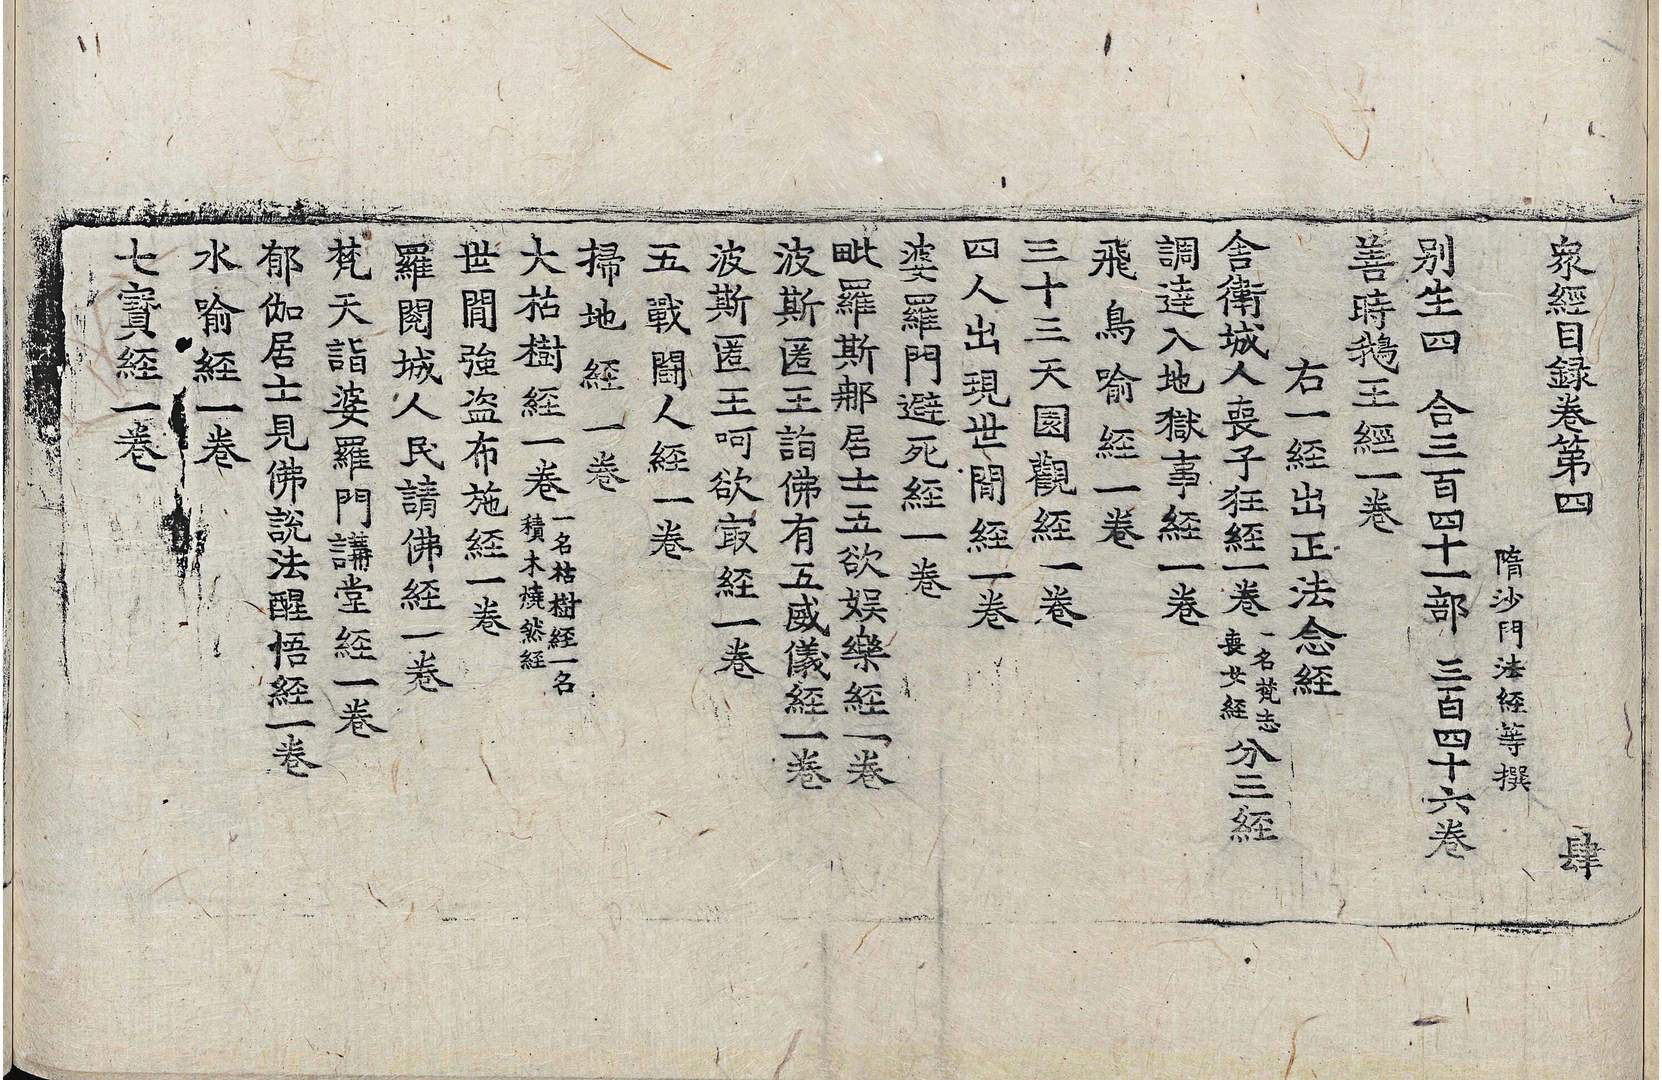 衆經目録卷第四 肆
隋沙門法經等撰
别生四 合三百四十一部 三百四十六卷
善時鵝王經一卷
右一經出正法念經
舍衛城人喪子狂經一卷 一名梵志喪女經 分三經
調達入地獄事經一卷
飛鳥喻經一卷
三十三天園觀經一卷
四人出現世閒經一卷
婆羅門避死經一卷
毗羅斯郍居士五欲娱樂經一卷
波斯匿王詣佛有五威儀經一卷
波斯匿王呵欲㝡經一卷
五戰鬪人經一卷
掃地經一卷
大枯樹經一卷 一名枯樹經一名積木燒然經
世閒強盗布施經一卷
羅閲城人民請佛經一卷
梵天詣婆羅門講堂經一卷
郁伽居士見佛說法醒悟經一卷
水喻經一卷
七寶經一卷